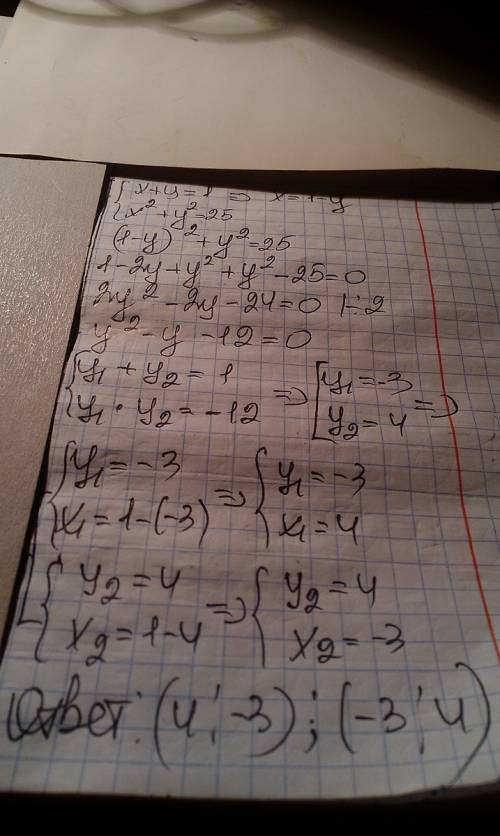 { x+y=1 => x=1-y
{ x²+y²=25
(1-y)²+y²=25
1-2y+y²+y²-25=0
2y²-2y-24=0 |:2
y²-y-12=0
{ y₁+y₂=1 => [ y₁=-3
{ y₁·y₂=-12 [ y₂=4 =>
{ y₁=-3 => { y₁=-3
{ x₁=1-(-3) { x₁=4
{ y₂=4 => { y₂=4
{ x₂=1-4 { x₂=-3
Ответ: (4;-3); (-3;4)